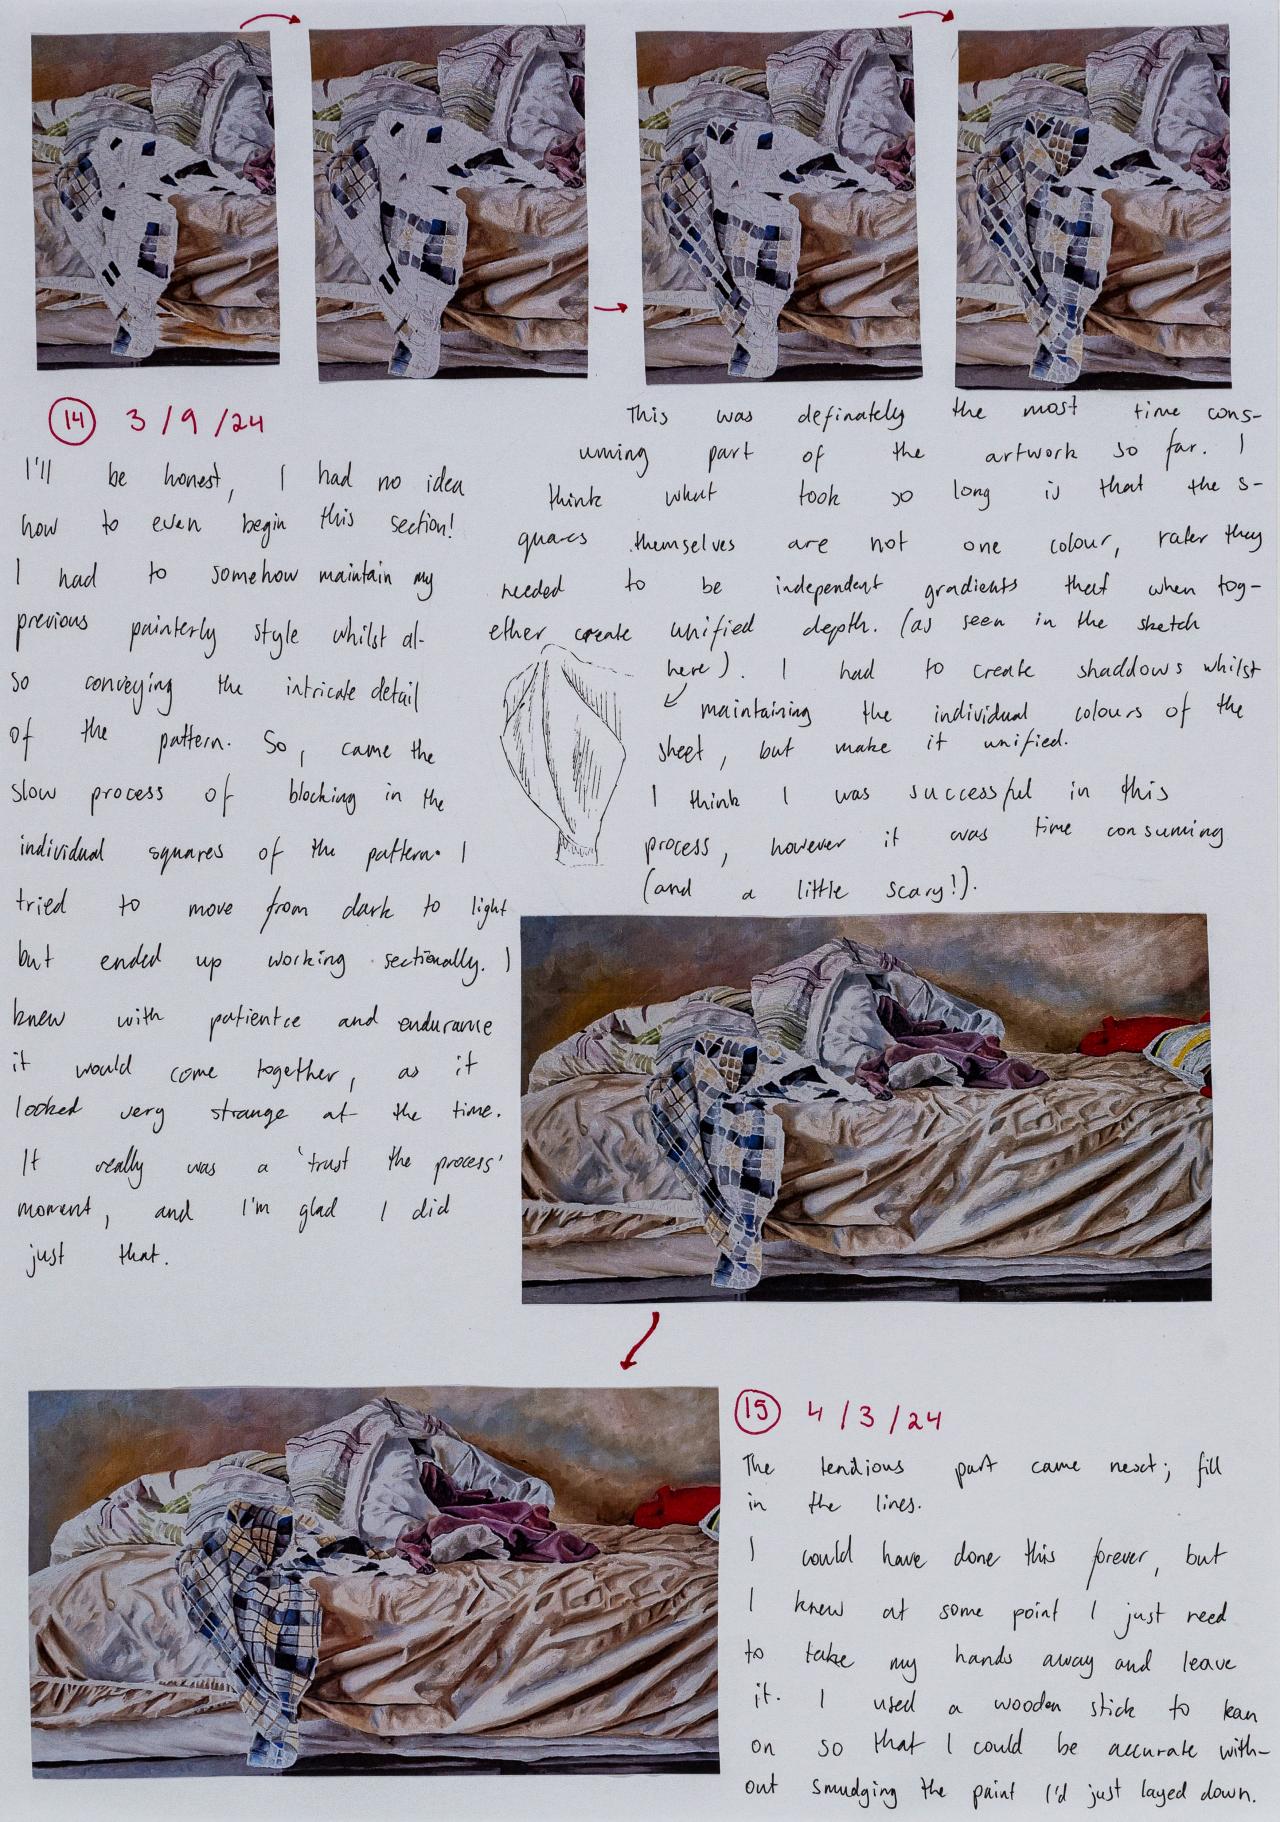 14 3/9/24
I'll be honest, I had no idea
how to even begin this section!
I had to somehow maintain my
previous painterly style whilst al-
so conveying the intricate detail
of the pattern. So, came the
slow process of blocking in the
individual squares of the pattern. I
tried to move from dark to light
but ended up working sectionally. I
knew with patientce and endurance
it would come together, as it
looked very strange at the time.
It really was a 'trust the process'
moment, and I'm glad I did
just that.
This was definately the most time cons-
uming part of the artwork so far. I
think what took so long is that the s-
quares themselves are not one colour, rater they
needed to be independent gradients that when tog-
ether create unified depth. (as seen in the sketch
here). I had to create shaddows whilst
maintaining the individual colours of the
sheet, but make it unified.
I think I was successful in this
process, however it was time consuming
(and a little scary!).
15 4/3/24
The tendious part came next; fill
in the lines.
I could have done this forever, but
I knew at some point I just need
to take my hands away and leave
it. I used a wooden stick to lean
on so that I could be accurate with-
out smudging the paint I'd just layed down.